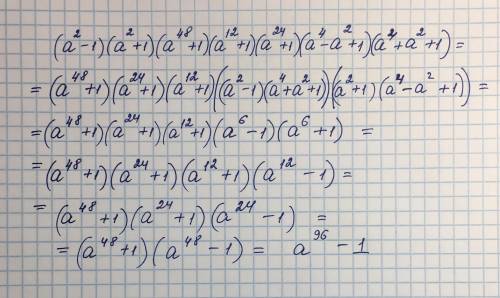 (a²-1)(a²+1)(a⁴⁸+1)(a¹²+1)(a²⁴+1)(a⁴-a²+1)(a⁴+a²+1)=
=(a⁴⁸+1)(a²⁴+1)(a¹²+1)((a²-1)(a⁴+a²+1))((a²+1)(a⁴-a²+1))=
=(a⁴⁸+1)(a²⁴+1)(a¹²+1)(a⁶-1)(a⁶+1) =
=(a⁴⁸+1)(a²⁴+1)(a¹²+1)(a¹²-1)=
= (a⁴⁸+1)(a²⁴+1)(a²⁴-1) =
=(a⁴⁸+1)(a⁴⁸-1)= a⁹⁶-1